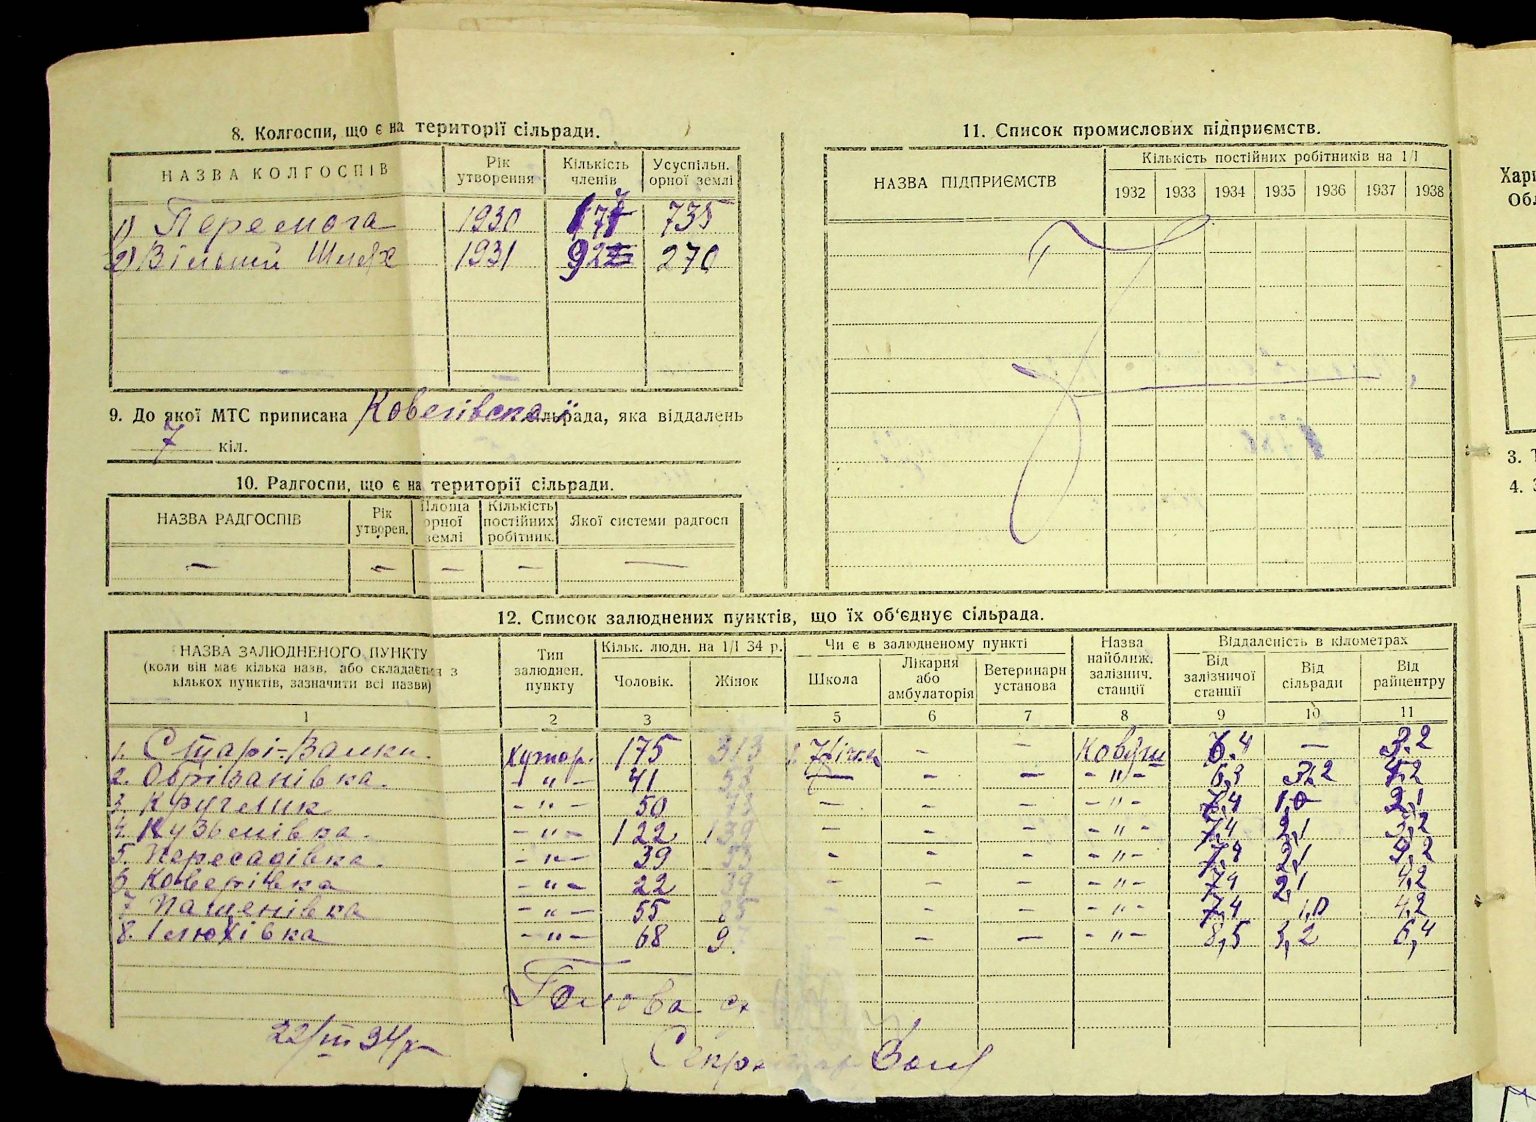 8. Колгоспи, що є на території сільради.
НАЗВА КОЛГОСПІВ
Рік утворення
Кількість членів
Усуспільн. орної землі
1) Перемога 1930 177 735
2) Вільний Шлях 1931 92 270
9. До якої МТС приписана сільрада, яка віддалень
7 кіл.
10. Радгоспи, що є на території сільради.
НАЗВА РАДГОСПІВ
Рік утворен.
Площа орної землі
Кількість постійних робітник.
Якої системи радгосп
— — — — —
11. Список промислових підприємств.
НАЗВА ПІДПРИЄМСТВ
Кількість постійних робітників на 1/I
1932 1933 1934 1935 1936 1937 1938
12. Список залюднених пунктів, що їх об‘єднує сільрада.
НАЗВА ЗАЛЮДНЕНОГО ПУНКТУ
(коли він має кілька назв, або складається з
кількох пунктів, зазначити всі назви)
Тип залюднен. пункту
Кільк. людн. на 1/I 34 р.
Чоловік. Жінок
Чи є в залюдненому пункті
Школа
Лікарня або амбулаторія
Ветеринарн установа
Назва найближ. залізнич. станції
Віддаленість в кілометрах
Від залізничої станції
Від сільради
Від райцентру
1 2 3 5 6 7 8 9 10 11
1. Старі-Валки. хутор. 175 313 — — 6.4 — 3.2
2. -"- 41 — — — -"- 6,3 3,2
3. Круглик -"- 50 — — — -"- 7,4 1,0 2,1
4. Кузьмівка. -"- 122 — — — -"- 7,4 2,1 3,2
5. Пересадівка. -"- 39 - - - -"- 7,4 2,1
6. Коверівка -"- 22 — — — -"- 74 2,1 4,2
7. Пащенівка -"- 55 — - — -"- 7.4 1,0 4,2
8. Ілюхівка -"- 68 — — -"- 8,5 3,2 6,4
Голова
22/III 34 р
Секретар